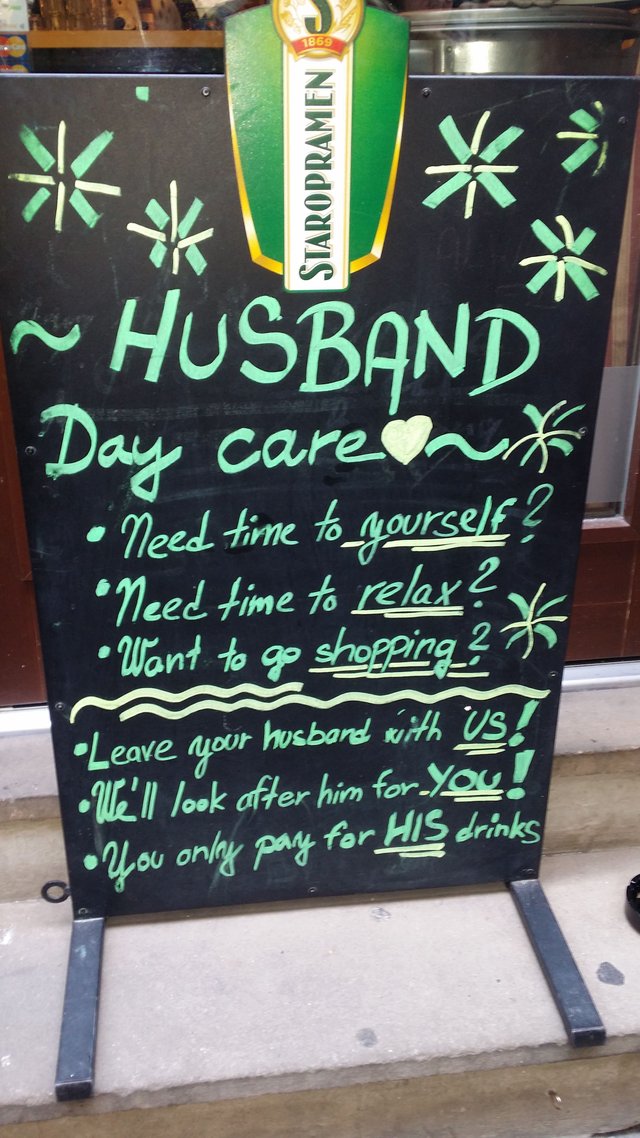 1869
STAROPRAMEN
~ HUSBAND
Day care ~
• Need time to yourself?
• Need time to relax?
• Want to go shopping?
• Leave your husband with US!
• We'll look after him for YOU!
• You only pay for HIS drinks